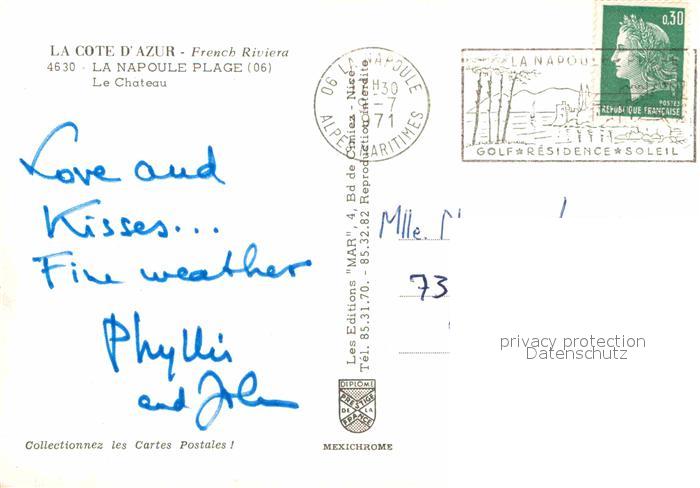 LA COTE D'AZUR - French Riviera
4630 - LA NAPOULE PLAGE (06)
Le Chateau
Love and
Kisses...
Fine weather
Phyllis
and John
Collectionnez les Cartes Postales !
Les Editions "MAR", 4, Bd de Cimiez - Nice
Tél. 85.31.70. - 85.32.82 Reproduction interdite
DIPLOME
PRESTIGE
DE LA
FRANCE
MEXICHROME
06 LA NAPOULE
H30
-7
71
ALPES MARITIMES
LA NAPOUL
GOLF ★ RÉSIDENCE ★ SOLEIL
0,30
POSTES
REPUBLIQUE FRANÇAISE
Mlle.
73
privacy protection
Datenschutz